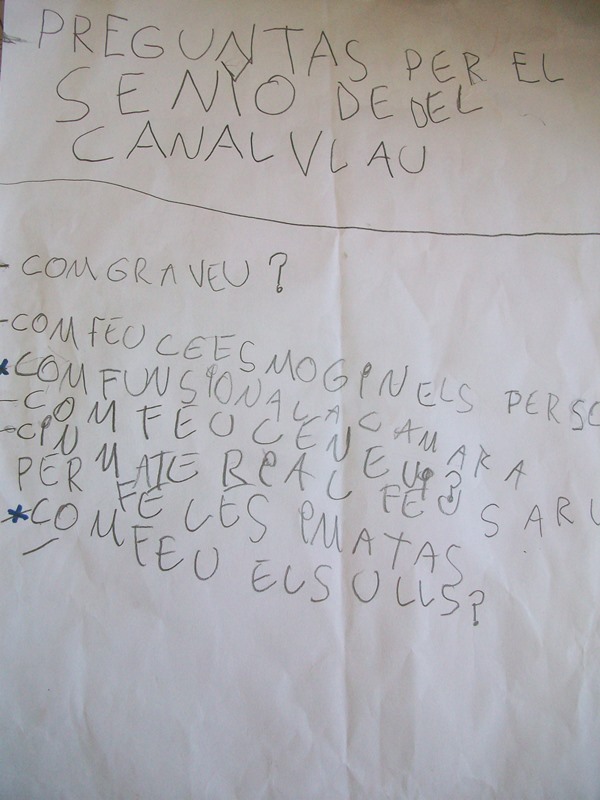 PREGUNTAS PER EL
SENYO DE DEL
CANAL VLAU
- COM GRAVEU?
- COM FEU CE ES MOGIN ELS PERSO
* COM FUNSIONA LA CAMARA
- COM FEU CEN NEVI?
- CIN MATERIAL FEU SARU
PER FE LES PMATAS
* COM FEU ELS ULLS?